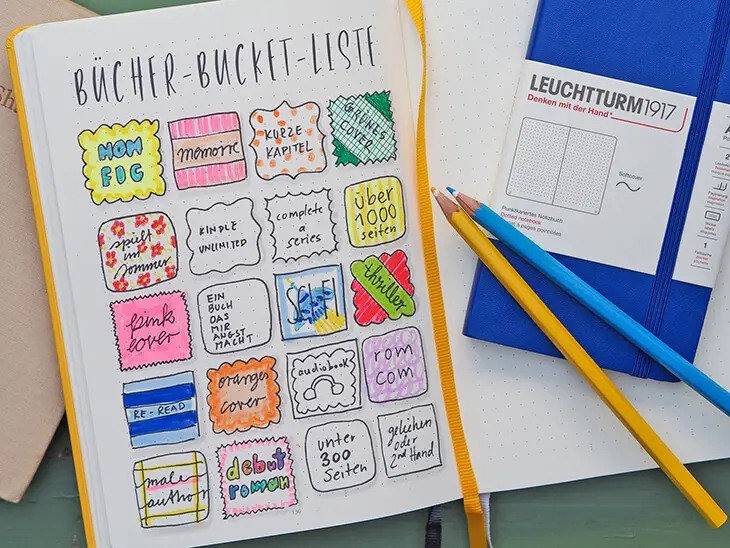 BÜCHER-BUCKET-LISTE
NON
FIC
memoire
KURZE
KAPITEL
GRÜNES
COVER
spielt
im
Sommer
KINDLE
UNLIMITED
complete
a
series
über
1000
seiten
pinkes
cover
EIN
BUCH
DAS
MIR
ANGST
MACHT
SCIFI
thriller
RE-READ
oranges
cover
audiobook
rom
com
male
author
debut
roman
unter
300
Seiten
geliehen
oder
2nd Hand
LEUCHTTURM1917
Denken mit der Hand
Softcover
Punktkariertes Notizbuch
Dotted notebook